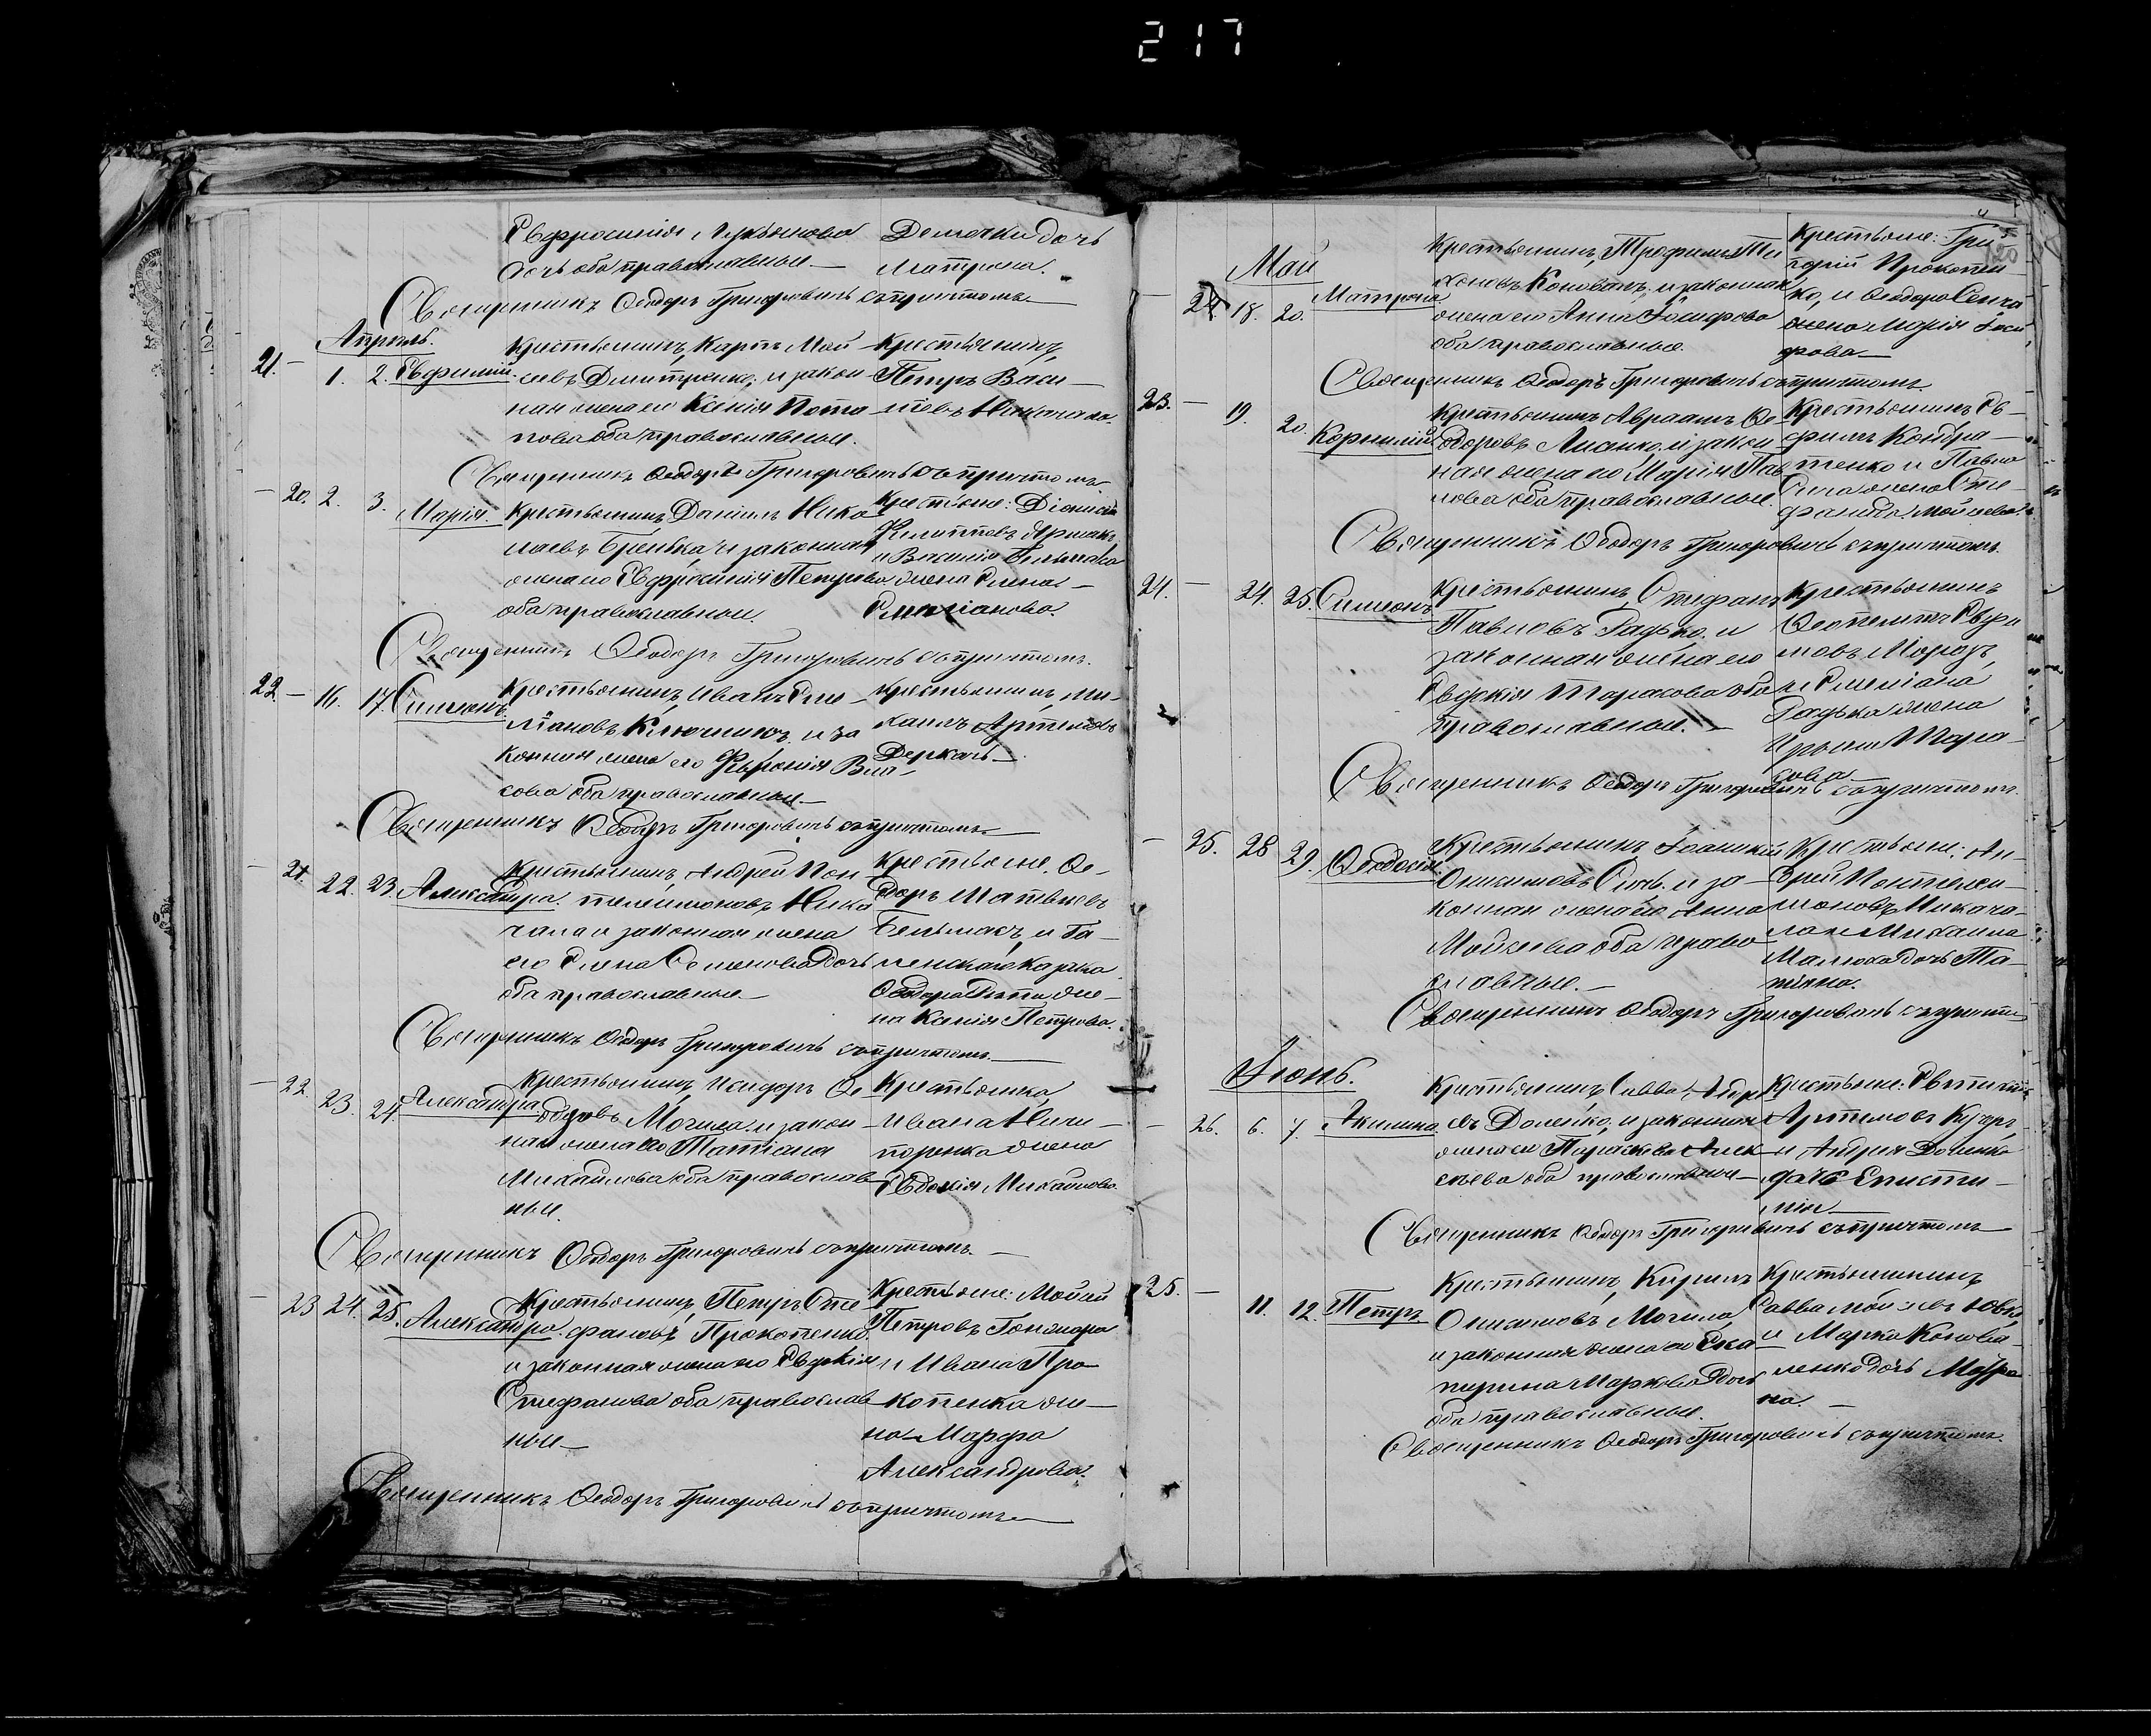 217
Евфросинія Лукьянова
дочь оба православные.
Демочки дочь
Матрона.
Священникъ Ѳеодоръ Григоровичъ съ причтомъ
Апрѣль.
21. — 1. 2. Евфимій.
Крестьянинъ, Карпъ Мой
сеевъ Дмитренко, и закон
ная жена его Ксенія Пота
пова оба православные.
Крестьянинъ,
Петръ Васи
льевъ
Священникъ Ѳеодоръ Григоровичъ съ причтомъ
— 20. 2. 3. Марія.
Крестьянинъ Даніилъ Нико
лаевъ и законная
жена его Евфросинія Петрова
оба православные.
Крестьяне: Діонисій
Филипповъ
и Василія
жена Елена
Емиліанова.
Священникъ Ѳеодоръ Григоровичъ съ причтомъ.
22. — 16. 17. Симеонъ
Крестьянинъ, Иванъ Еме
ліановъ Ключникъ, и за
конная жена его Вла
сова оба православные.
Крестьянинъ, Ми
хаилъ Артемовъ
Деркачъ
Священникъ Ѳеодоръ Григоровичъ съ причтомъ
— 21. 22. 23. Александра.
Крестьянинъ, Андрей Пан
телеимоновъ Мика
чала и законная жена
его Елена Семенова дочь
оба православные
Крестьяне, Ѳе
доръ Матвѣевъ
Бельмасъ, и
казака
Ѳеодора же
на Ксенія Петрова.
Священникъ Ѳеодоръ Григоровичъ съ причтомъ
— 22. 23. 24. Александра.
Крестьянинъ, Исидоръ Ѳе
одоровъ Могила и закон
ная жена его Татіана
Михайлова оба православ
ные.
Крестьянка,
Ивана Ничи
поренка жена
Евдокія Михайлова
Священникъ Ѳеодоръ Григоровичъ съ причтомъ.
— 23 24. 25. Александра.
Крестьянинъ, Петръ Сте
фановъ Прокопенко
и законная жена его Евдокія
Стефанова оба православ
ные
Крестьяне: Мойсей
Петровъ Гончаров
и Ивана Про
копенка же
на Марфа
Александрова.
Священникъ Ѳеодоръ Григоровичъ съ причтомъ
Май
— 24. 18. 20. Матрона.
Крестьянинъ, Трофимъ Ти
хоновъ Коновалъ, и законная
жена его Анна Іосифова
оба православные.
Крестьяне: Гри
горій Прокопен
ко, и Ѳеодора Сенча
жена Марія Іоси
фова
Священникъ Ѳеодоръ Григоровичъ съ причтомъ.
23. — 19. 20. Корнилій
Крестьянинъ Авраамъ Ѳе
одоровъ и закон
ная жена его Марія Пав
лова оба православные.
Крестьянинъ Ев
фимъ Кондра
тенко и Павла
жена Сте
фанида Мойсеева.
Священникъ Ѳеодоръ Григоровичъ съ причтомъ.
24. — 24. 25. Симеонъ
Крестьянинъ, Стефанъ
Павловъ Гадько, и
законная жена его
Евдокія Тарасова оба
православные.
Крестьянинъ
Ѳеопемптъ Евфи
мовъ Морозъ,
и Емеліана
Гадька жена
Ирына Тара
сова
Священникъ Ѳеодоръ Григоровичъ съ причтомъ.
— 25. 28 29. Ѳеодосія.
Крестьянинъ Іоанникій
Онисимовъ и за
конная жена его Анна
Мойсеева оба право
славные.
Крестьяне: Ан
дрей Пантелеи
моновъ Микача
ла и Михаила
Малюка дочь Та
тіана.
Священникъ Ѳеодоръ Григоровичъ съ причтомъ
Іюнь.
— 26. 6. 7. Акилина.
Крестьянинъ Савва Андре
евъ Доленко, и законная
жена его Параскева Алек
сѣева оба православные
Крестьяне: Евтихій
Артемовъ Кучеръ
и Андрея Доленка
дочь Еписти
мія
Священникъ Ѳеодоръ Григоровичъ съ причтомъ
25. — 11. 12. Петръ
Крестьянинъ, Кирилъ
Онисимовъ Могила,
и законная жена его Ека
терина Маркова дочь
оба православные.
Крестьянинъ
Савва Мойсеевъ
и Марка Конова
ленко дочь Матро
на.
Священникъ Ѳеодоръ Григоровичъ съ причтомъ.